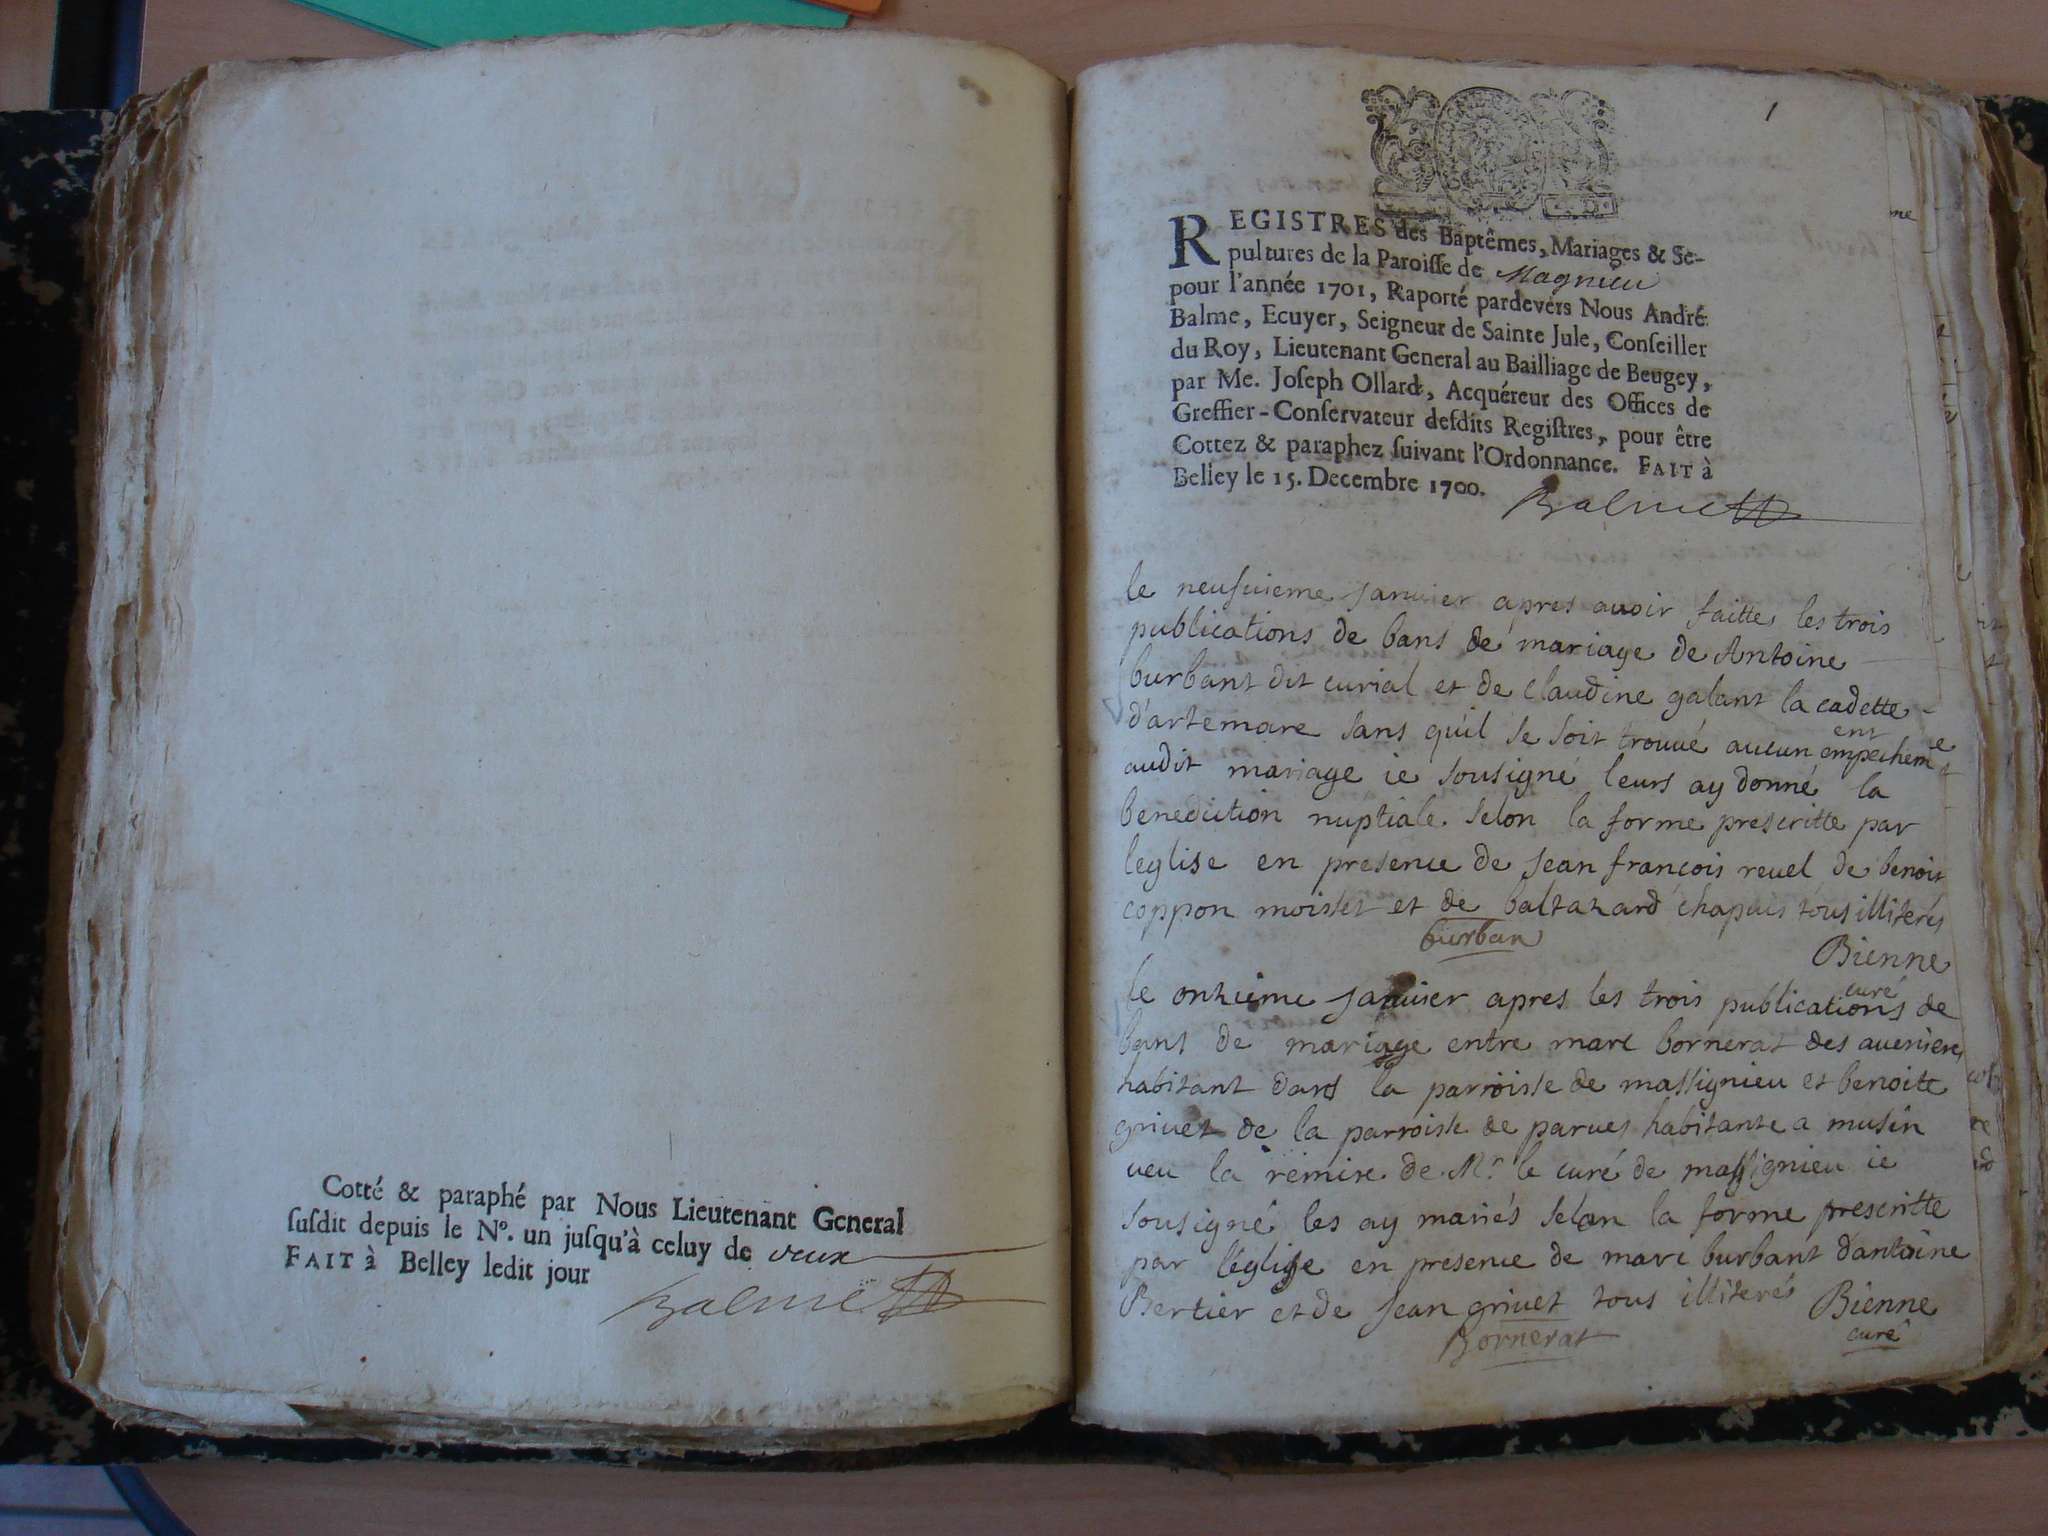 Cotté & paraphé par Nous Lieutenant General
ſuſdit depuis le Nº. un juſqu'à celuy de
FAIT à Belley ledit jour
Balme
1
REGISTRES des Baptêmes, Mariages & Se-
pultures de la Paroiſſe de Magnieu
pour l'année 1701, Raporté pardevers Nous André
Balme, Ecuyer, Seigneur de Sainte Jule, Conſeiller
du Roy, Lieutenant General au Bailliage de Beugey,
par Me. Joſeph Ollard, Acquéreur des Offices de
Greffier-Conſervateur deſdits Regiſtres, pour être
Cottez & paraphez ſuivant l'Ordonnance. FAIT à
Belley le 15. Decembre 1700.
Balme
le neufuieme januier apres auoir faittes les trois
publications de bans de mariage de Antoine
burbant dit curial et de claudine galant la cadette
d'artemare sans qu'il se soit trouué aucun empechement
audit mariage ie sousigné leurs ay donné la
benediction nuptiale selon la forme prescritte par
leglise en presence de jean françois reuel de benoit
coppon moisset et de baltazard chapuis tous illiterés
burban
Bienne
curé
le onzieme januier apres les trois publications de
bans de mariage entre marc bornerat des auenieres
habitant dans la parroisse de massignieu et benoitte
griuet de la parroisse de parues habitante a musin
veu la remise de Mr. le curé de massignieu ie
sousigné les ay mariés selon la forme prescritte
par l'églige en presence de marc burbant d'antoine
Bertier et de jean griuet tous illiterés
Bienne
curé
Bornerat